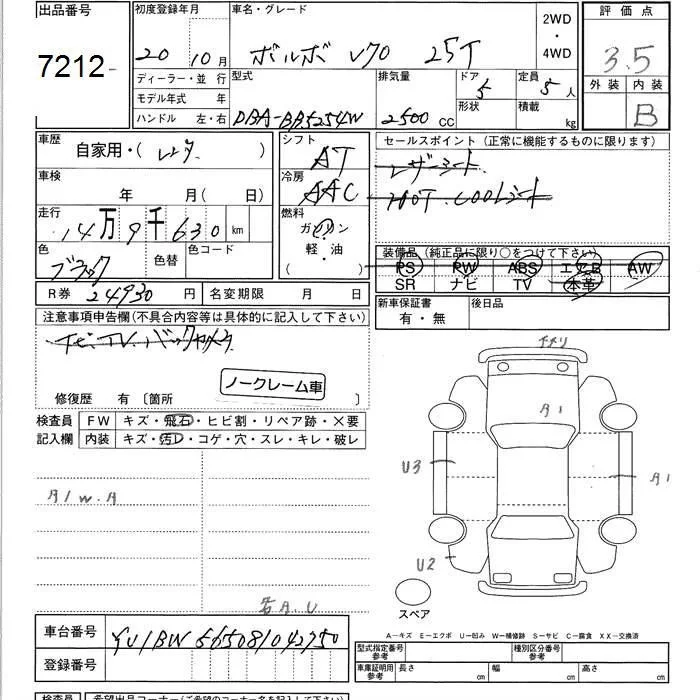 出品番号
7212
初度登録年月
20年 10月
車名・グレード
ボルボ V70 25T
2WD
・
4WD
評価点
3.5
外装 内装
B
ディーラー・並行
モデル年式 年
ハンドル 左・右
型式
DBA-BB5254W
排気量
2500 CC
ドア
5
形状
定員
5人
積載
kg
車歴
自家用・( )
車検
年 月( 日)
走行
14万9千630 km
色
ブラック
色替
色コード
シフト
AT
冷房
AAC
燃料
ガソリン
軽・油
( )
セールスポイント(正常に機能するものに限ります)
レザーシート
HOT・COOLシート
装備品(純正品に限り○をつけて下さい)
PS PW ABS エアB AW
SR ナビ TV 本革
新車保証書
有・無
後日品
R券 24930円
名変期限 月 日
注意事項申告欄(不具合内容等は具体的に記入して下さい)
ナビ・TV・バックカメラ
ノークレーム車
修復歴 有〔箇所 〕
検査員
記入欄
FW キズ・飛石・ヒビ割・リペア跡・×要
内装 キズ・汚レ・コゲ・穴・スレ・キレ・破レ
A/W.A
A.U
A1
U3
A1
U2
スペア
A−キズ E−エクボ U−凹み W−補修跡 S−サビ C−腐食 XX−交換済
車台番号 YV1BW565081042750
登録番号
型式指定番号
参考
種別区分番号
参考
車庫証明用
参考
長さ cm 幅 cm 高さ cm
検査員 希望出品コーナー(ご希望のコーナー名を記入して下さい)